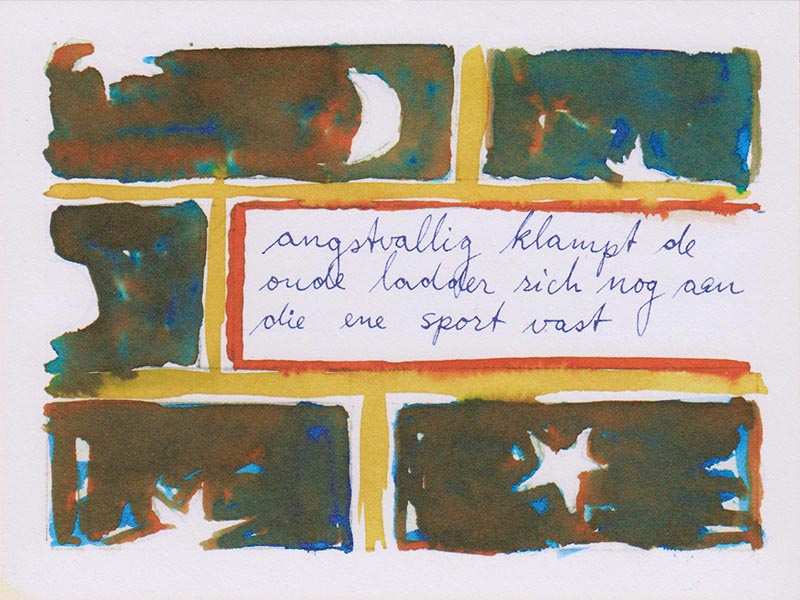 angstvallig klampt de
oude ladder zich nog aan
die ene sport vast